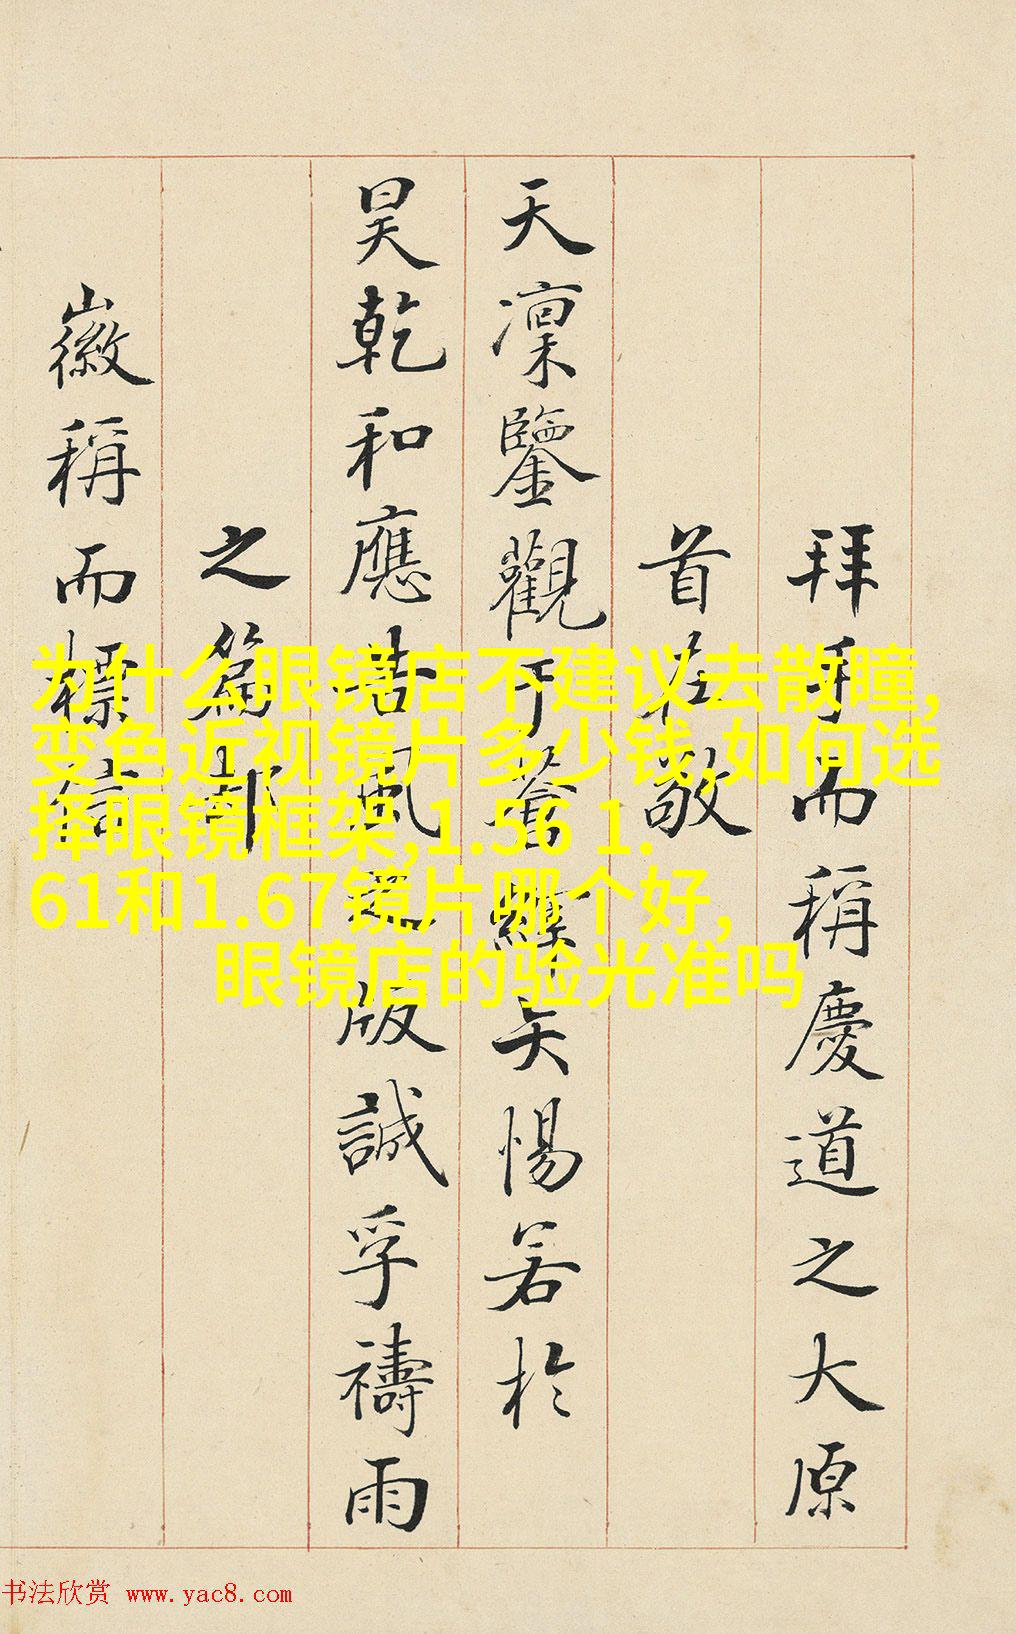 拜手而稱慶道之大原
首莊敬
天凜鑒觀矢惕若於
昊乾和應風版誠孚禱雨
之篇
徽稱而標
为什么眼镜店不建议去散瞳,
变色近视镜片多少钱,如何选
择眼镜框架,1.56 1.
61和1.67镜片哪个好,
眼镜店的验光准吗
书法欣赏 www.yac8.com